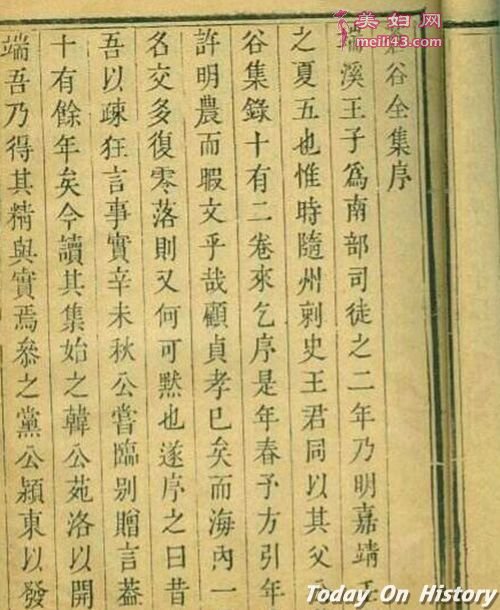 美妇网
meili43.com
谷全集序
端溪王子爲南部司徒之二年乃明嘉靖壬
之夏五也惟時隨州刺史王君同以其父
谷集錄十有二卷來乞序是年春予方引年
許明農而暇文乎哉顧貞孝已矣而海內一
名交多復零落則又何可默也遂序之曰昔
吾以疎狂言事實辛未秋公嘗臨别贈言葢
十有餘年矣今讀其集始之韓公苑洛以開
端吾乃得其精與實焉叅之黨公潁東以發
Today On History